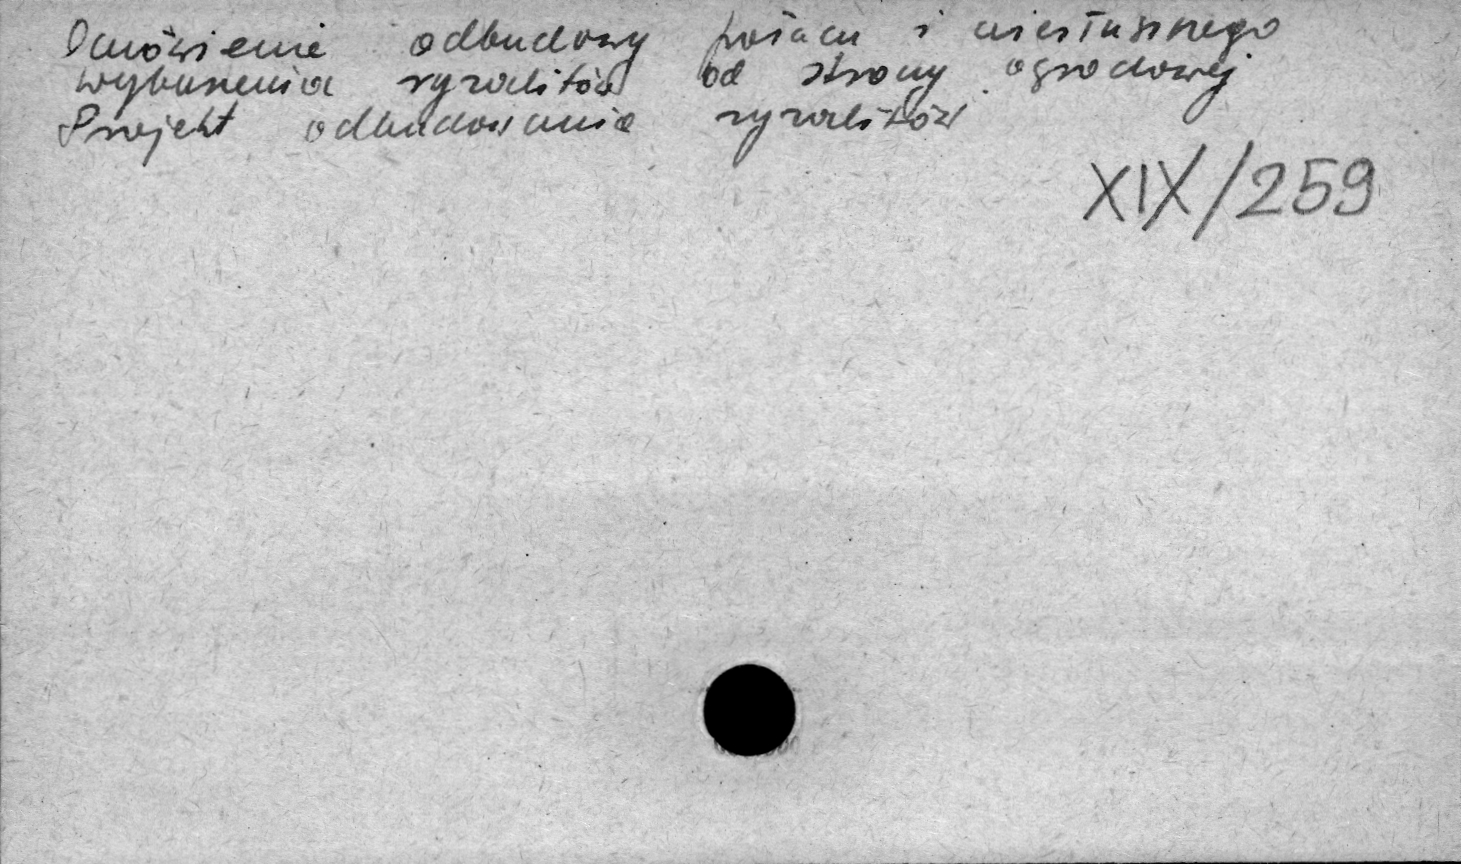 Omówienie odbudowy pałacu i niesłusznego
wyburzenia ryzalitów od strony ogrodowej
Projekt odbudowania ryzalitów
XIX/259